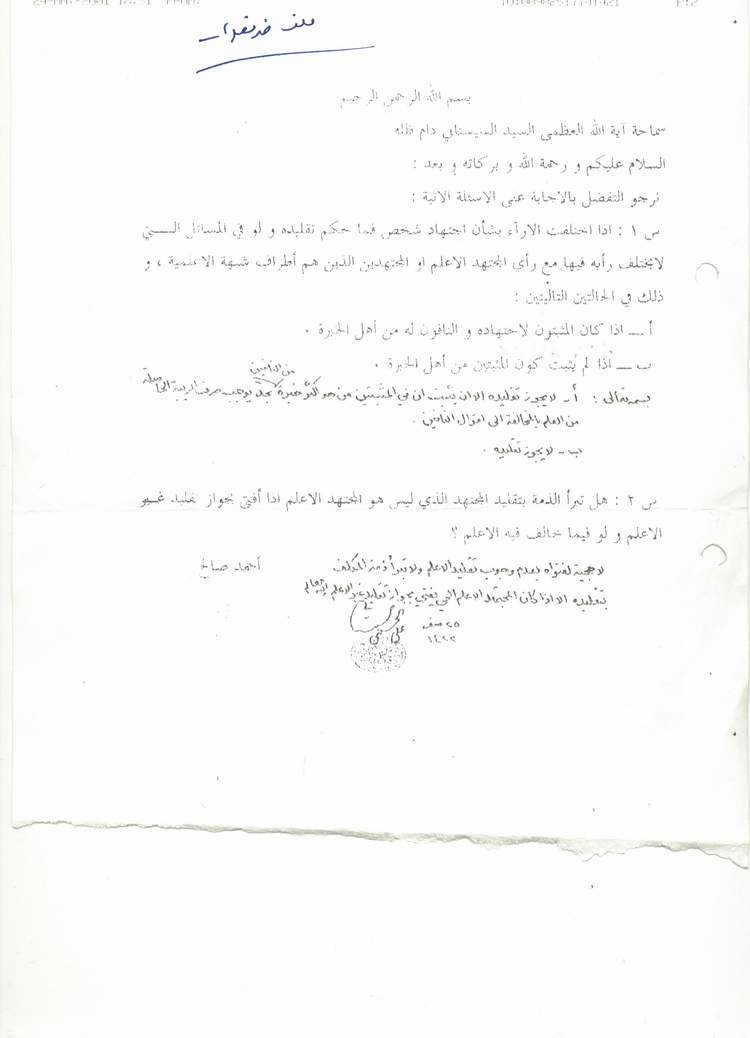 ملف
بسم الله الرحمن الرحيم
سماحة آية الله العظمى السيد السيستاني دام ظله
السلام عليكم و رحمة الله و بركاته و بعد :
نرجو التفضل بالاجابة على الاسئلة الاتية :
س ١ : اذا اختلفت الارآء بشأن اجتهاد شخص فما حكم تقليده و لو في المسائل الـــتي
لايختلف رأيه فيها مع رأي المجتهد الاعلم او المجتهدين الذين هم أطراف شبهة الاعلمية ، و
ذلك في الحالتين التاليتين :
أ ــ اذا كان المثبتون لاجتهاده و النافون له من أهل الخبرة .
ب ــ اذا لم يُثبت كون المثبتين من أهل الخبرة .
من النافين
بسمه تعالى : أ- لا يجوز تقليده الا ان يثبت ان في المثبتين من هو اكثر خبرة بحد يوجب صرف الريبة الحاصلة
من العلم بالمخالفة الى اقوال النافين .
ب- لا يجوز تقليده .
س ٢ : هل تبرأ الذمة بتقليد المجتهد الذي ليس هو المجتهد الاعلم اذا أفتى بجواز تقليد غــير
الاعلم و لو فيما خالف فيه الاعلم ؟
أحمد صالح
لا حجية لفتواه بعدم وجوب تقليد الاعلم ولا تبرأ ذمة المكلف
بتقليده الا اذا كان المجتهد الاعلم الحي يفتي بجواز تقليد غير الاعلم
٢٥ صفر
١٤٢٢